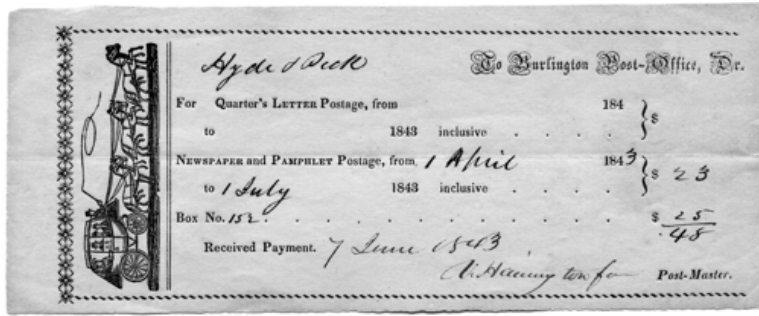 Hyde & Peck To Burlington Post-Office, Dr.
For Quarter's LETTER Postage, from 184 $
to 1843 inclusive . . . .
NEWSPAPER and PAMPHLET Postage, from 1 April 1843 $ 23
to 1 July 1843 inclusive . . . .
Box No. 152. . . . . . . . . . . . . . $ 25
.48
Received Payment. 7 June 1843
Post-Master.